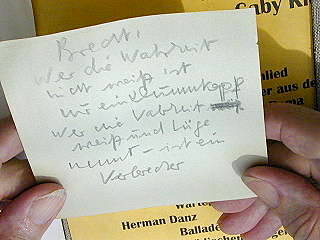 Gaby Kl
Brecht:
Wer die Wahrheit
nicht weiß ist
nur ein Dummkopf
Wer die Wahrheit
weiß und Lüge
nennt - ist ein
Verbrecher
lied
er aus de
Herman Danz
Ballade